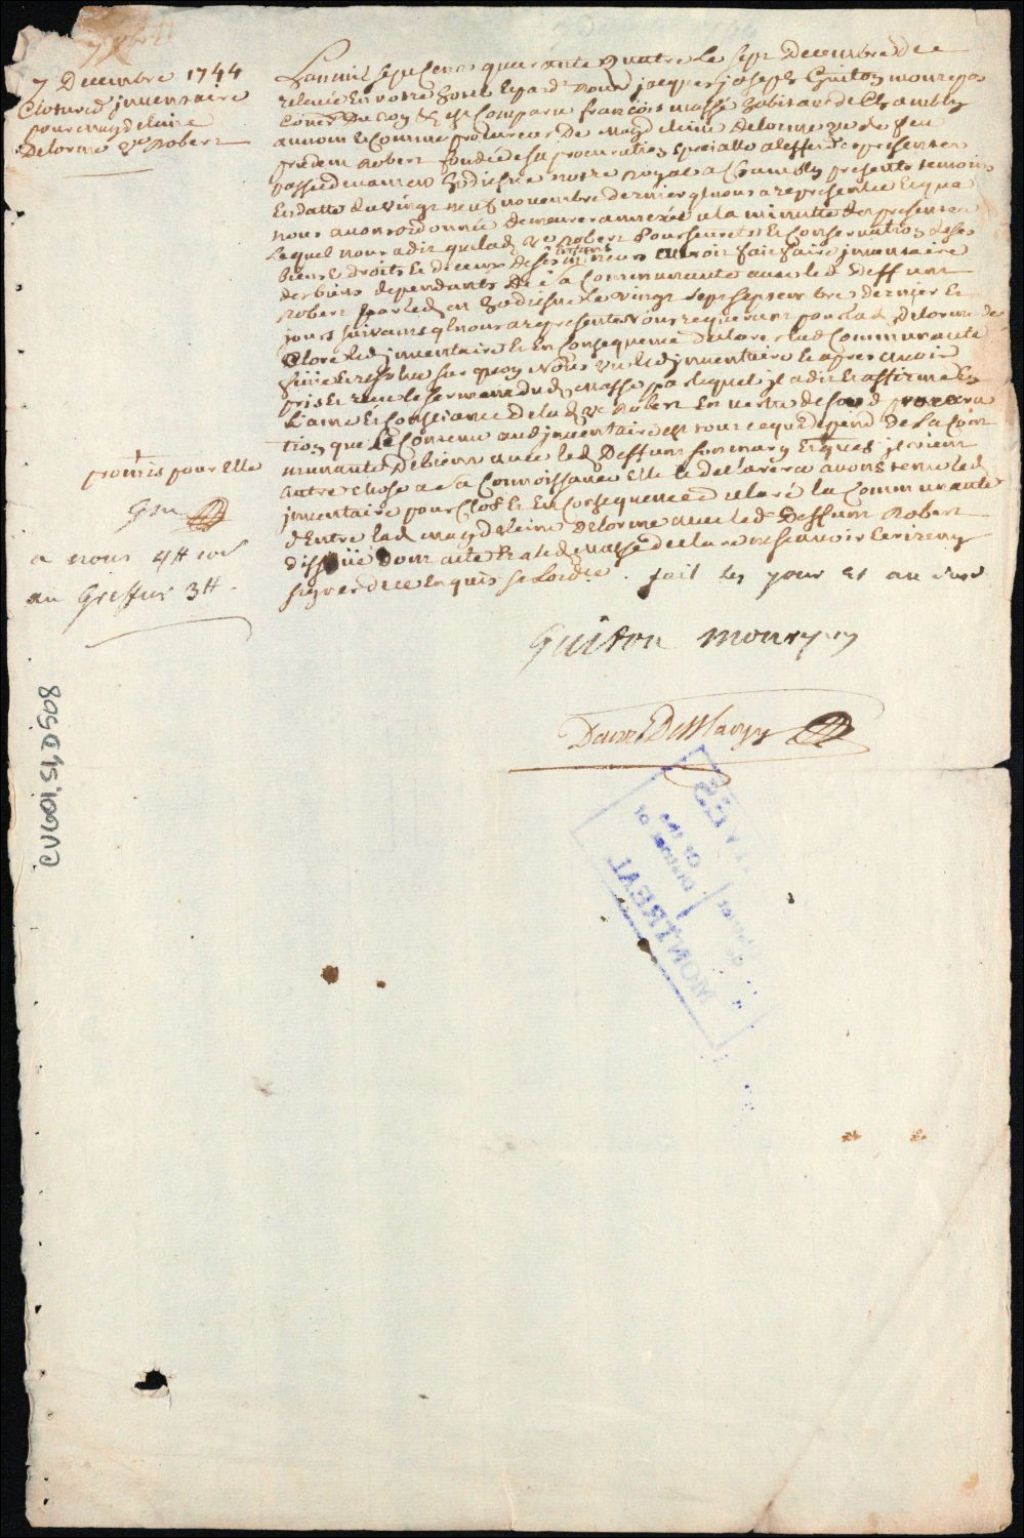 7 Decembre 1744
Cloture d jnventaire
pour magd elaine
Delorme ve Robert
Lan mil sept cens quarante quatre le sept Decembre de
relevée En notre hotel et pard nous jacques joseph Guiton monrepos
Coner Du Roy est Comparu francois massé habitant de Chambly
au nom et Comme procureur De magd elaine Delorme ve de feu
prudent Robert fondé de sa procuration specialle a leffet des presentes
passée devant hodiesne nottre Royal a Chambly presents temoins
En datte du vingt neuf novembre dernier qu nous a representée Et que
nous avons ordonnée demeurer annexée a la minutte des presentes
Lequel nous a dit que lad ve Robert Pour seureté Et Conservation de ses
biens & droits Et de ceux de ses enfans mineurs auroit fait faire jnventaire
des biens dependants de la Communauté avec led Deffunt
Robert par led hodiesne le vingt sept septembre dernier Et
jours suivants qu nous a representé Nous requerant pour lad Delorme de
Cloré led jnventaire Et En Consequence declarer lad Communauté
sur quoy Nous Vu led jnventaire Et apres avoir
pris Et reçu le serment dud massé par lequel jl a dit Et affirmé En
L'ame Et Consciance de lad ve Robert En vertu de sad procura
tion que le Contenu aud jnventaire est tout ce qui depend de La Com
munauté De biens avec led Deffunt son mary Et que s'jl vient
autre chose a sa Connoissance Elle le declarera avons tenu led
jnventaire pour Clos Et En Consequence declaré la Communauté
d'Entre lad magd elaine Delorme avec led Deffunt Robert
dissoüe Dont acte Et a led massé declaré ne sçavoir Ecrire ny
signer de ce Enquis se Lordce . fait les jour Et an susd
promis pour Elle
Gm
a nous 4# 
au Greffier 3#
Guiton monrepos
Danré DeBlanzy
MONTREAL